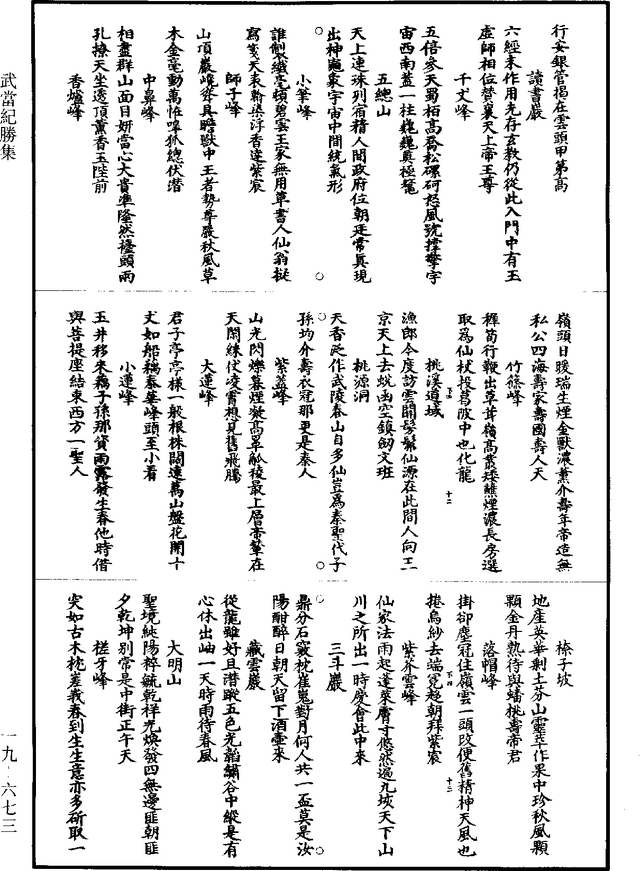 行安銀管揭在雲頭甲第高
讀書巖
六經未作用先存玄教仍從此入門中有玉
虛師相位贊襄天上帝王尊
千丈峰
五倍參天蜀栢高喬松磥砢怒風號撐擎宇
宙西南蓋一柱巍巍真極鼇
五總山
天上連珠列宿精人間政府位朝廷常真現
出神龜象宇宙中間統氣形
小筆峰
誰製纖毫頓碧雲王家無用草書人仙翁擬
寫箋天表新染浮香達紫宸
師子峰
山頂巖巉聳具瞻獸中王者勢尊嚴秋風草
木金毫動萬怪嘷狐總伏潛
中鼻峰
相盡群山面目妍當心大貴準隆然穩頭兩
孔撩天坐透頂薰香玉陛前
香爐峰
嶺頭日暖瑞生煙金獸濃薰介壽年帝造無
私公四海壽家壽國壽人天
竹篠峰
穉筍行鞭出草茸嶺高叢矮蘸煙濃長房選
取為仙杖投葛陂中也化龍
桃溪道域
漁郎今度訪雲關髣髴仙源在此間人向玉
京天上去蛻函空鎮紉文班
桃源洞
天香咫作武陵春山自多仙豈為秦聖代子
孫均介壽衣冠那更是秦人
紫蓋峰
山光閃爍暮煙凝高罩觚稜最上層帝輦在
天閑絲仗凌霄想見舊飛騰
大蓮峰
君子亭亭樣一般根株闊遶萬山盤花開十
丈如船藕泰華峰頭至小看
小蓮峰
玉井移來藕子孫那貸雨露發生春他時借
與菩提座結束西方一聖人
榛子坡
地產英華剩土芬山靈萃作果中珍秋風顆
顆金丹熟待與蟠桃壽帝君
落帽峰
掛卻塵冠住嶺雲一頭改便舊精神天風也
捲烏紗去端冕趨朝拜紫宸
紫芥雲峰
仙家法雨起蓬萊膚寸悠然遍九垓天下山
川之所出一時慶會此中來
三斗巖
鼎分石竅枕崔嵬對月何人共一盃莫是汝
陽酣醉日朝天留下酒壺來
藏雲巖
從龍雖好且潛蹤五色光韜繡谷中縱是有
心休出岫一天時雨待春風
大明山
聖境純陽粹毓乾祥光煥發四無邊匪朝匪
夕乾坤別常是中街正午天
槎牙峰
突如古木枕嵳峩春到生生意亦多斫取一
武當紀勝集
一九·六七三